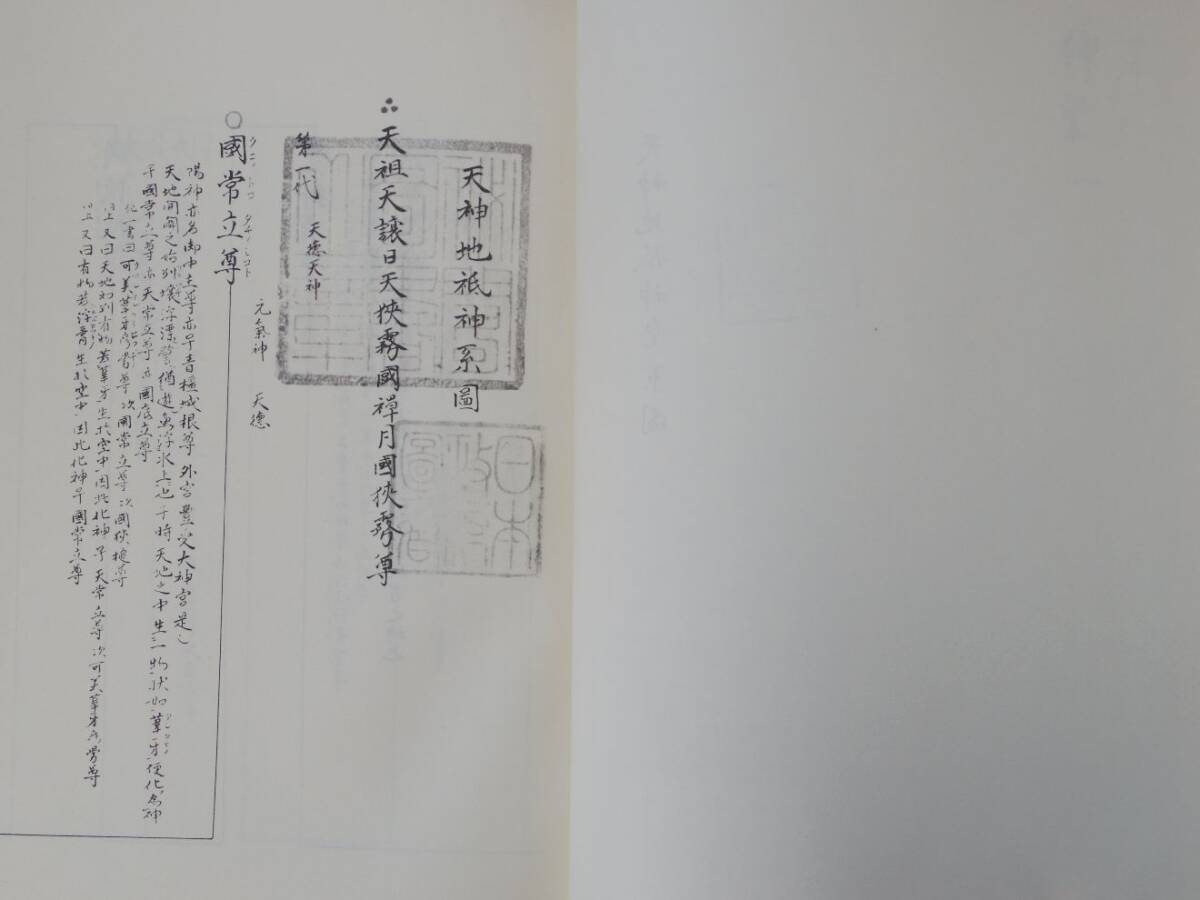 天神地祇神系圖
天祖天譲日天狹霧國禅月國狹霧尊
第一代 天德天神
元氣神 天德
國常立尊
陽神亦名御中主尊亦早 根尊外宮豊受大神宮是
天地開闢之始別壤浮漂譬猶遊魚浮水上也于時天地之中生一物状如葦牙便化為神
國常立尊亦天常立尊亦國底立尊
一書曰可美葦牙彦舅尊次國常立尊次國狹槌尊
又曰天地初判有物若葦牙生於空中因此化神号天常立尊次可美葦牙彦舅尊
又曰有物若浮膏生於空中因此化神号國常立尊
日本